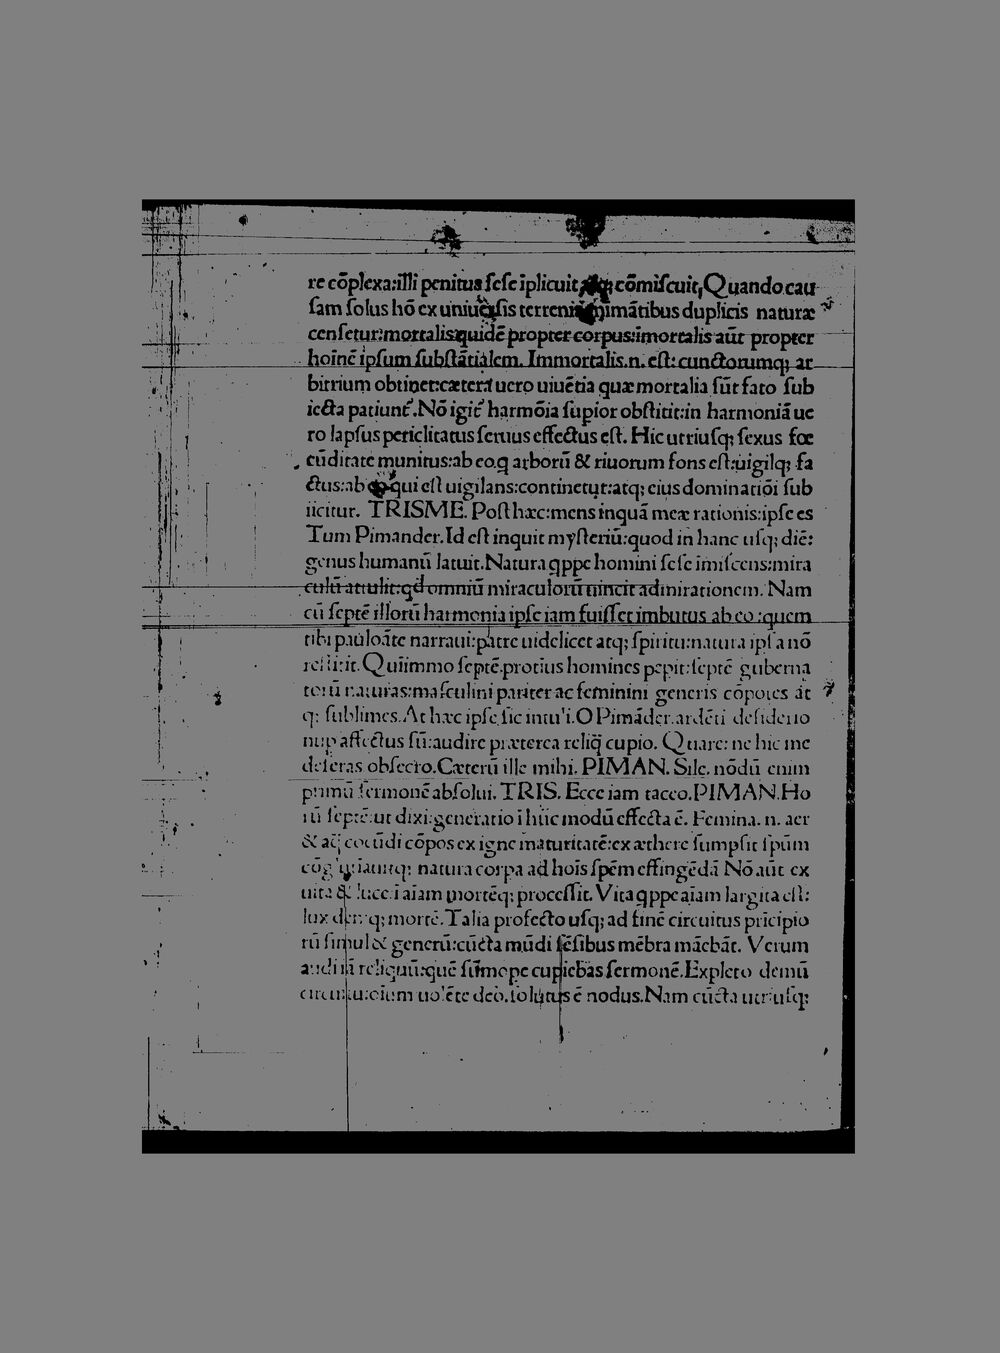 re cōplexa:illi penitus ſeſe īplicuit atq; cōmiſcuit, Quando cau
ſam ſolus hō ex uniuerſis terrenis animātibus duplicis naturæ
cenſetur:mortalis quidē propter corpus:īmortalis aūt propter
hoīnē ipſum ſubſtātialem. Immortalis.n. eſt: cunctorumq; ar
bitrium obtinet:cætera uero uiuētia quæ mortalia ſūt fato ſub
iecta patiunt᷑. Nō igit᷑ harmōia ſupior obſtitit:in harmoniā ue
ro lapſus periclitatus ſeruus effectus eſt. Hic utriuſq; ſexus fœ
cūditate munitus:ab eo.q arborū & riuorum fons eſt:uigilq; fa
ctus:ab eo qui eſt uigilans:continetur:atq; eius dominatiōi ſub
iicitur. TRISME. Poſt hæc:mens inquā meæ rationis:ipſe es
Tum Pimander. Id eſt inquit myſteriū:quod in hanc uſq; diē:
genus humanū latuit. Natura qppe homini ſeſe īmiſcens:mira
culū attulit:qd omniū miraculorū uincit admirationem. Nam
cū ſeptē illorū harmonia ipſe iam fuiſſet imbutus ab eo :quem
tibi pauloāte narraui:patre uidelicet atq; ſpiritu:natura ipſa nō
reſtitit. Quīimmo ſeptē.protīus homines pepit:ſeptē guberna
torū naturas:maſculini pariter ac feminini generis cōpotes āt
q; ſublimes. At hæc ipſe ſic intuli. O Pimāder. ardēti deſiderio
nup affectus ſū:audire præterea reliq cupio. Quare: ne hic me
deſeras obſecro. Cæterū ille mihi. PIMAN. Sile. nōdū enim
primū ſermonē abſolui. TRIS. Ecce iam taceo. PIMAN. Ho
rū ſeptē:ut dixi:generatio ī hūc modū effecta ē. Femina. n. aer
& aq: coeūdi cōpos ex igne maturitatē:ex æthere ſumpſit ſpūm
natura corpa ad hoīs ſpēm effingēdā Nō aūt ex
uita & luce.ī aīam mortēq; proceſſit. Vita qppe aīam largita eſt:
lux deniq; mortē. Talia profecto uſq; ad finē circuitus prīcipio
rū ſimul & generū:cūcta mūdi ſēſibus mēbra māebāt. Verum
audi iā reliquū:quē ſūmope cupiebas ſermonē. Expleto demū
circuitu:oīum uolēte deo. ſolutus ē nodus. Nam cūcta utriuſq;